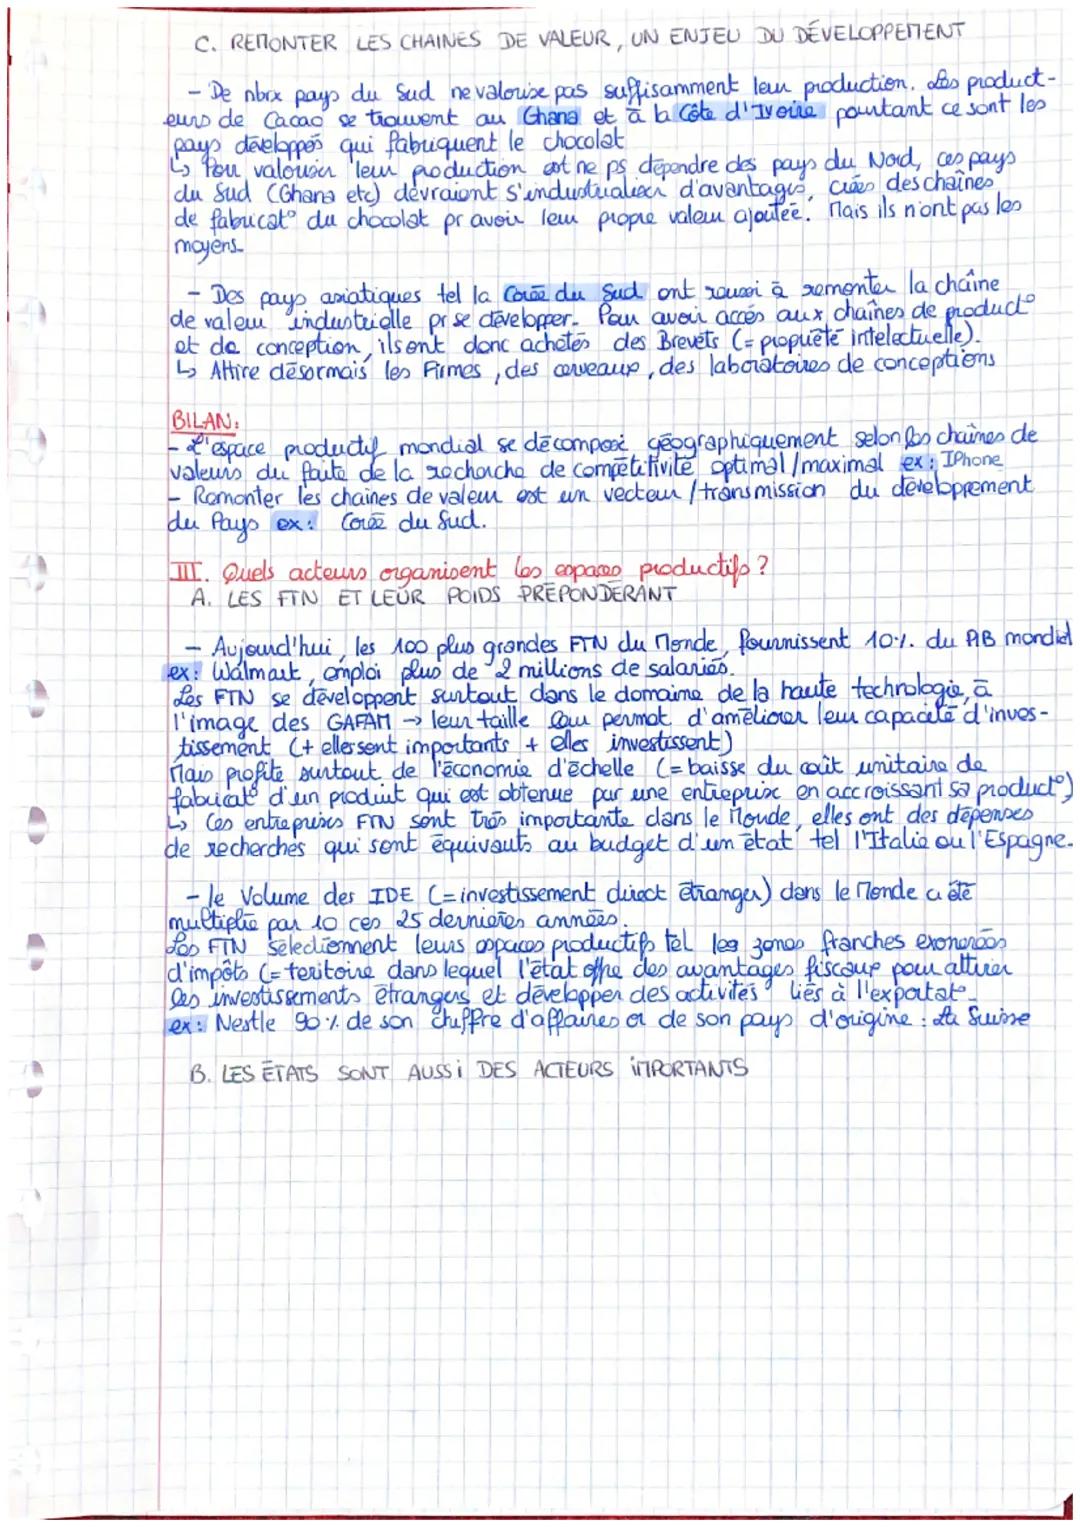 C. REMONTER LES CHAINES DE VALEUR, UN ENJEU DU DÉVELOPPEMENT
- De nbrx pays du Sud ne valorise pas suffisamment leur production. Les product-
eurs de Cacao se trouvent au Ghana et à la Côte d'Ivoire pourtant ce sont les
pays développés qui fabriquent le chocolat
↳ Pour valoriser leur production et ne ps dépendre des pays du Nord, ces pays
du Sud (Ghana etc) devraient s'industrialiser d'avantages, créés des chaînes
de fabricat° du chocolat pr avoir leur propre valeur ajoutée. Mais ils n'ont pas les
moyens.
- Des pays asiatiques tel la Corée du Sud ont réussi à remonter la chaîne
de valeur industrielle pr se développer. Pour avoir accés aux chaînes de product°
et de conception, ils ont donc achetés des Brevets (= propriété intelectuelle).
↳ Attire désormais les Firmes, des cerveaux, des laboratoires de conceptions
BILAN:
- L'espace productif mondial se décompose géographiquement selon les chaines de
valeurs du faite de la recherche de compétitivité optimal/maximal ex: IPhone
- Remonter les chaines de valeur est un vecteur/transmission du développement
du Pays ex: Corée du Sud.
III. Quels acteurs organisent les espaces productifs?
A. LES FTN ET LEUR POIDS PRÉPONDÉRANT
- Aujourd'hui, les 100 plus grandes FTN du Monde, fournissent 10% du PIB mondial
ex: Walmart, emploi plus de 2 millions de salariés.
Les FTN se développent surtout dans le domaine de la haute technologie, à
l'image des GAFAM → leur taille leur permet d'améliorer leur capacité d'inves-
tissement (+ elles sent importants + elles investissent)
Mais profite surtout de l'économie d'échelle (= baisse du coût unitaire de
fabricat° d'un produit qui est obtenue par une entreprise en accroissant sa product°)
↳ Ces entreprises FTN sont très importante dans le Monde, elles ont des dépenses
de recherches qui sont équivauts au budget d'un état tel l'Italie ou l'Espagne.
- le Volume des IDE (= investissement direct étranger) dans le Monde a été
multiplié par 10 ces 25 dernières années.
Les FTN sélectionnent leurs espaces productifs tel les zones franches exonérées
d'impôts (= teritoire dans lequel l'état offre des avantages fiscaux pour attirer
les investissements étrangers et développer des activités liés à l'exportat°.
ex: Nestle 90% de son chiffre d'affaires de son pays d'origine: La Suisse
B. LES ÉTATS SONT AUSSI DES ACTEURS IMPORTANTS